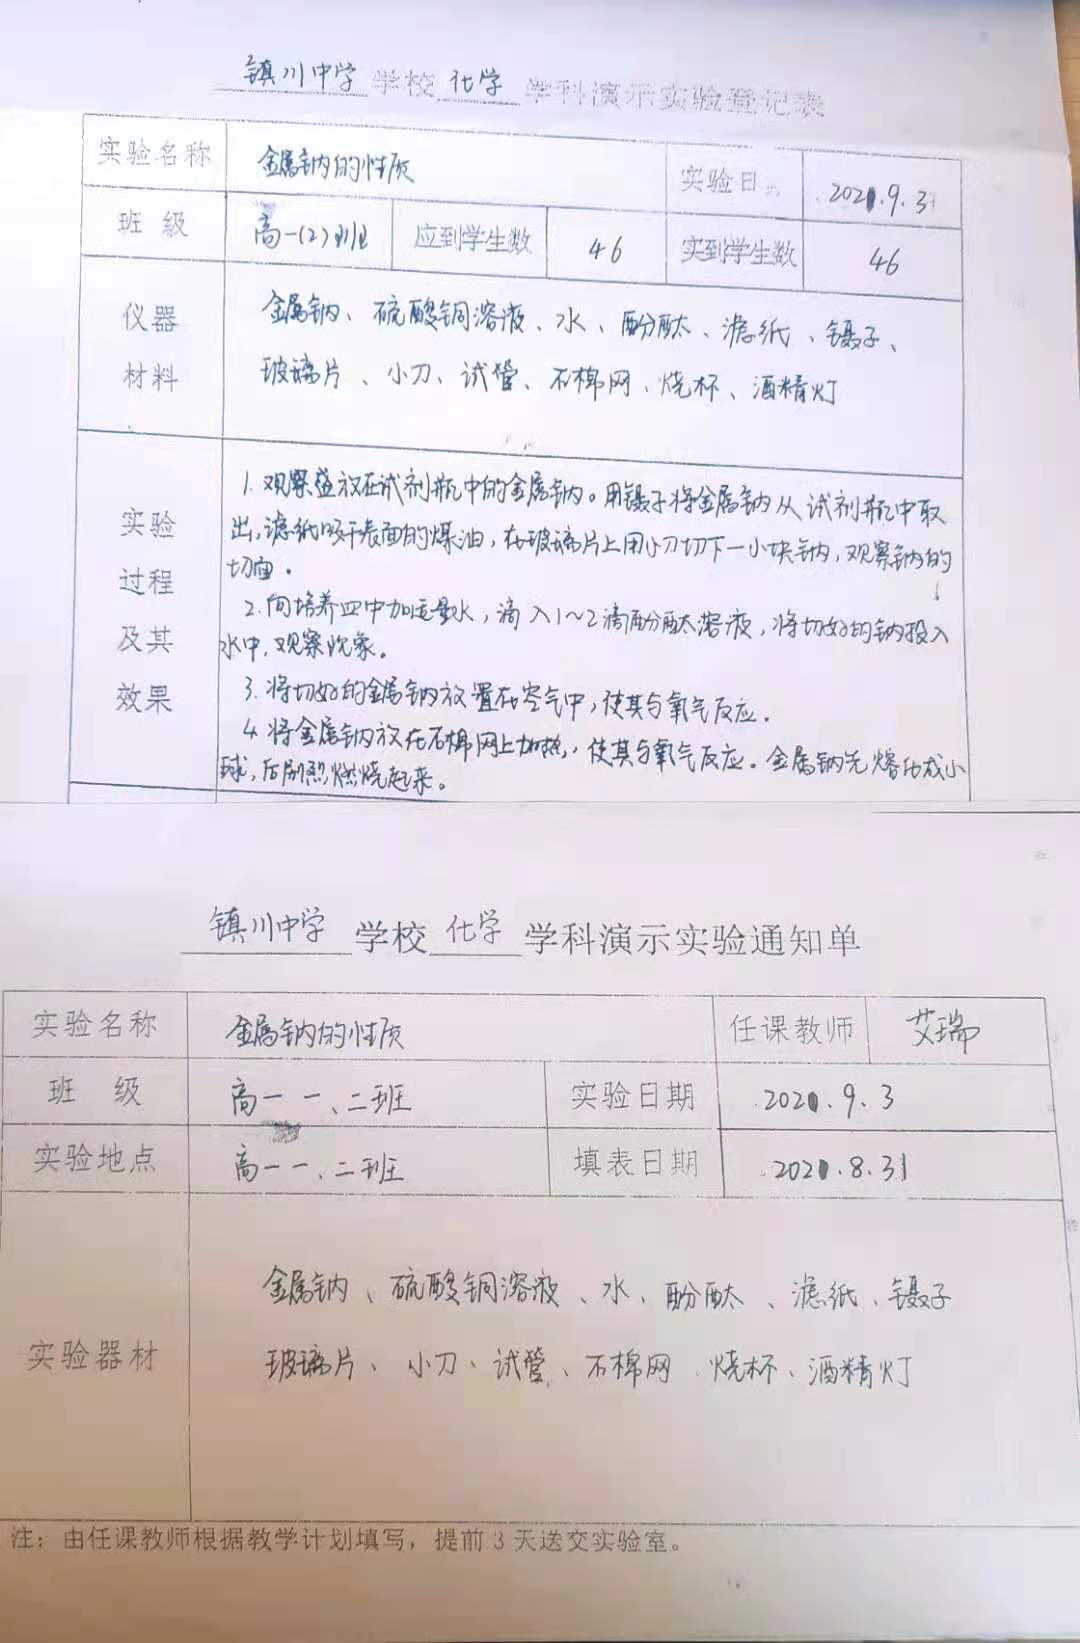 镇川中学 学校 化学 学科演示实验登记表
实验名称 金属钠的性质 实验日 2021.9.3
班级 高一(2)班 应到学生数 46 实到学生数 46
仪器材料
金属钠、硫酸铜溶液、水、酚酞、滤纸、镊子、
玻璃片、小刀、试管、石棉网、烧杯、酒精灯
实验过程及其效果
1.观察盛放在试剂瓶中的金属钠。用镊子将金属钠从试剂瓶中取
出,滤纸吸干表面的煤油,在玻璃片上用小刀切下一小块钠,观察钠的
切面。
2.向培养皿中加适量水,滴入1~2滴酚酞溶液,将切好的钠投入
水中,观察现象。
3.将切好的金属钠放置在空气中,使其与氧气反应.
4.将金属钠放在石棉网上加热,使其与氧气反应。金属钠先熔化成小
球,后剧烈燃烧起来。
镇川中学 学校 化学 学科演示实验通知单
实验名称 金属钠的性质 任课教师 艾瑞
班级 高一 一、二班 实验日期 2021.9.3
实验地点 高一 一、二班 填表日期 2021.8.31
实验器材
金属钠、硫酸铜溶液、水、酚酞、滤纸、镊子
玻璃片、小刀、试管、石棉网、烧杯、酒精灯
注:由任课教师根据教学计划填写,提前3天送交实验室。